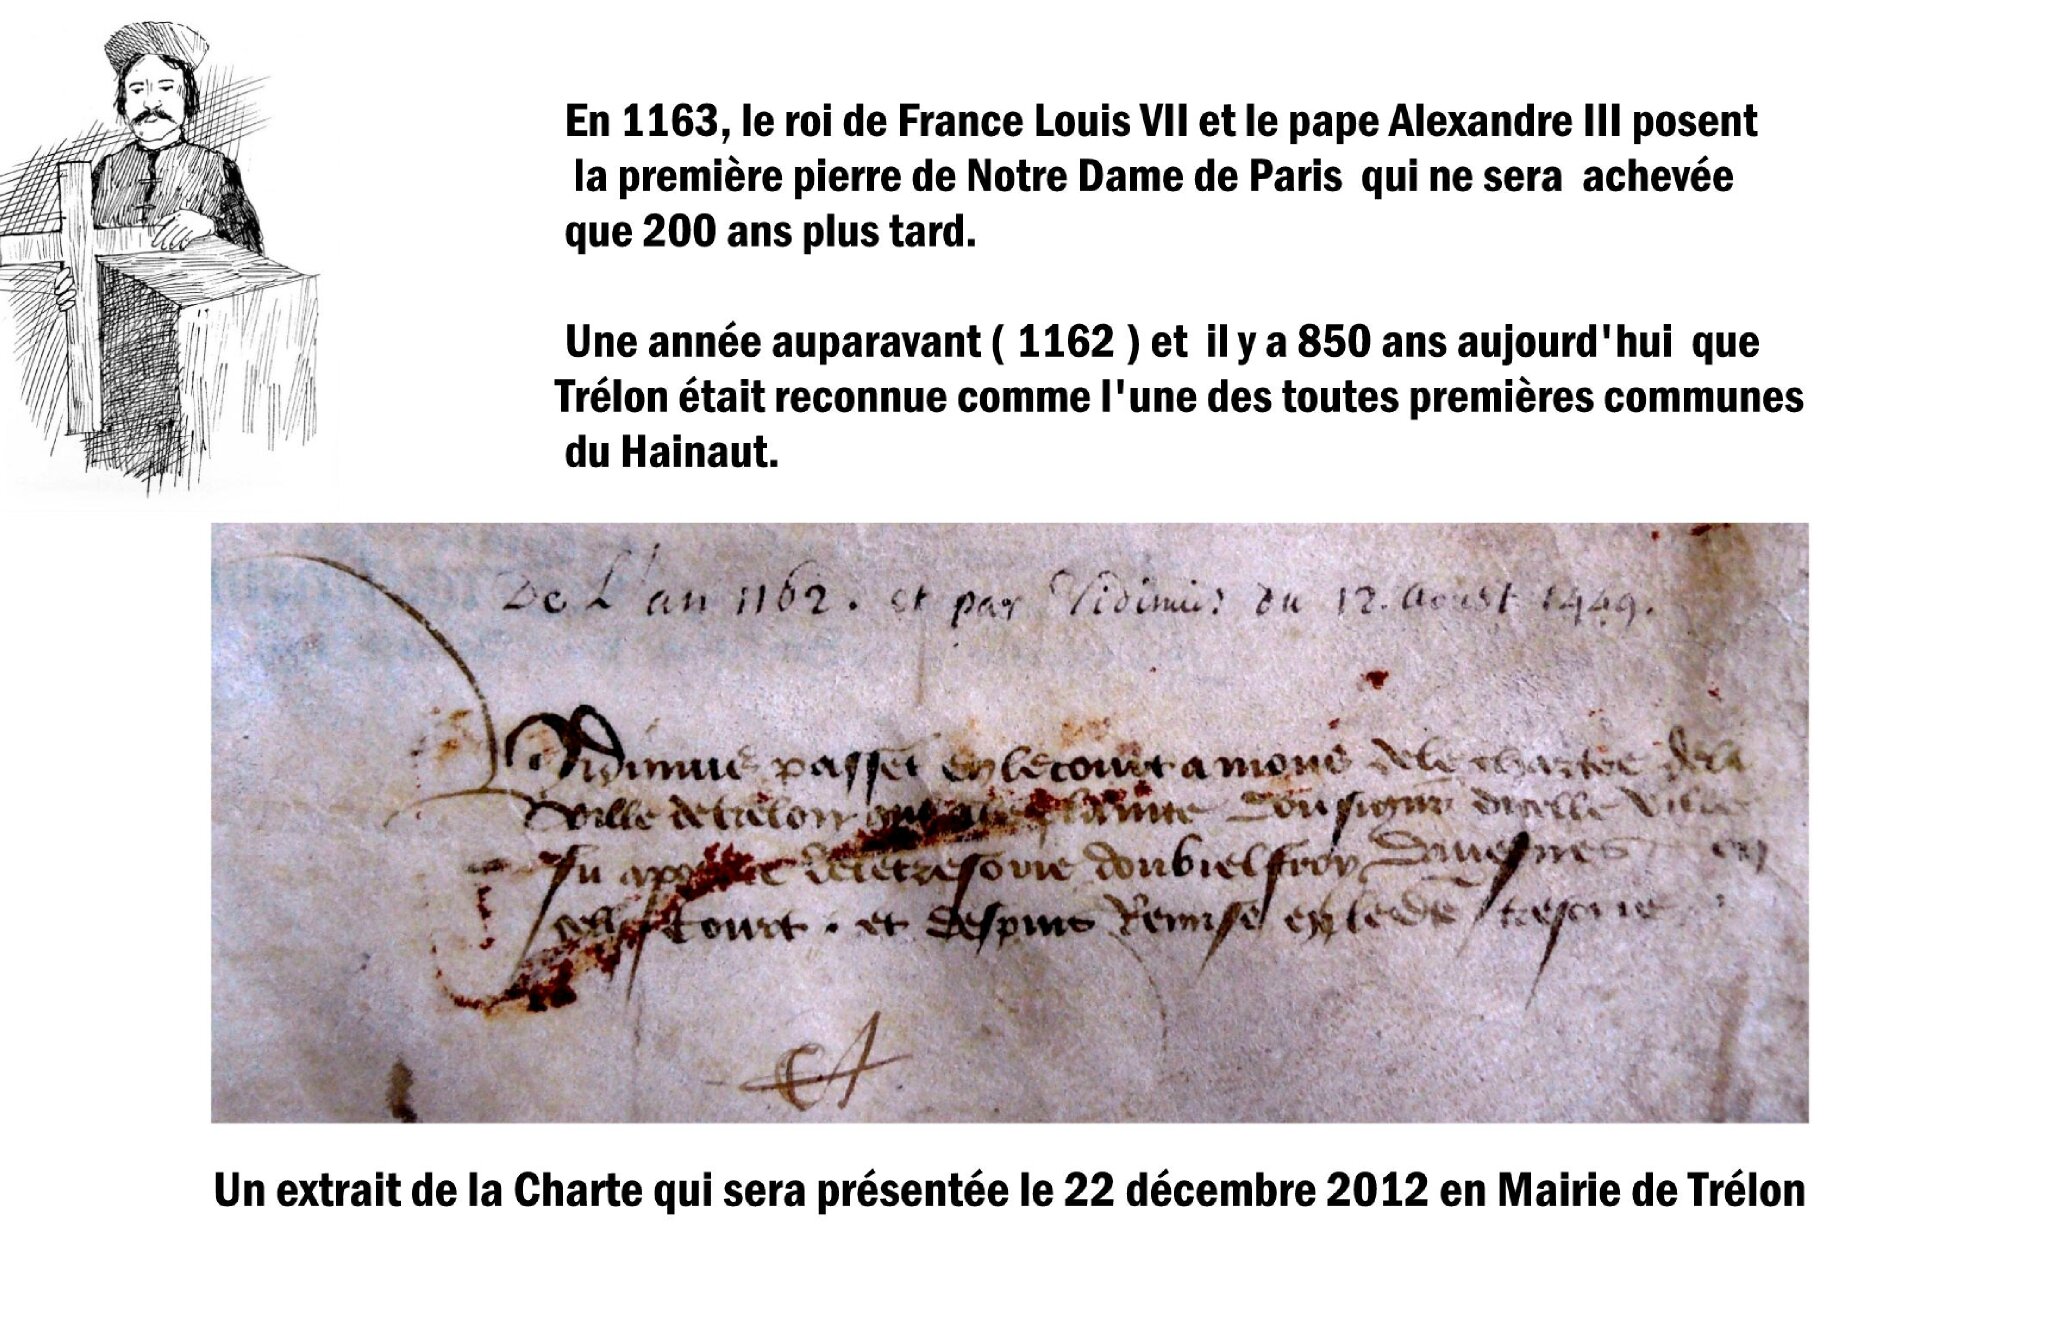 En 1163, le roi de France Louis VII et le pape Alexandre III posent
la première pierre de Notre Dame de Paris qui ne sera achevée
que 200 ans plus tard.
Une année auparavant ( 1162 ) et il y a 850 ans aujourd'hui que
Trélon était reconnue comme l'une des toutes premières communes
du Hainaut.
De L'an 1162. et par Vidimus du 12. Aoust 1449.
Vidimus passet en le court a mons de le chartre de la
Ville de trelon plainte dou signur dicelle Ville
fu de le tresorie doubielfroy Davesnes en
celle Court. et despuis Remise en le tresorie
Un extrait de la Charte qui sera présentée le 22 décembre 2012 en Mairie de Trélon